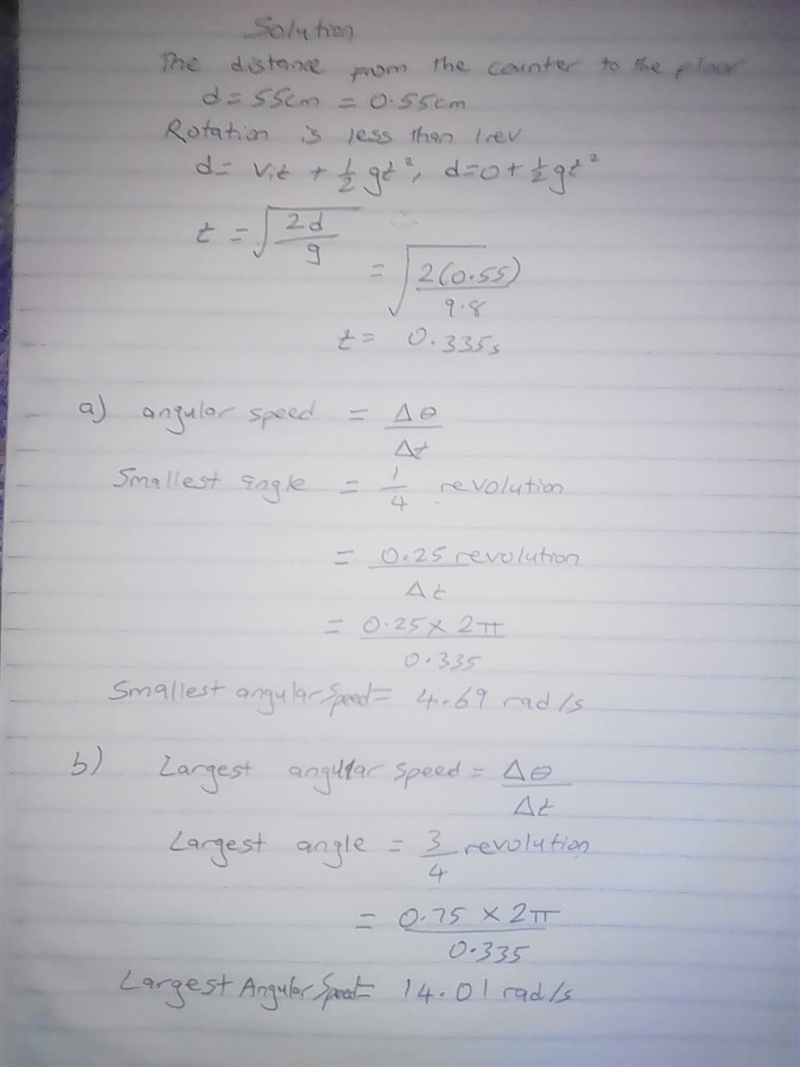 Solution
The distance from the counter to the floor
d = 55cm = 0.55cm
Rotation is less than 1rev
d = Vit + 1/2 gt², d=0+ 1/2 gt²
t = √(2d/g)
= √(2(0.55)/9.8)
t = 0.335s
a) angular speed = Δθ/Δt
Smallest angle = 1/4 revolution
= 0.25 revolution/Δt
= 0.25 × 2π/0.335
Smallest angular Speed = 4.69 rad/s
b) Largest angular speed = Δθ/Δt
Largest angle = 3/4 revolution
= 0.75 × 2π/0.335
Largest Angular Speed = 14.01 rad/s